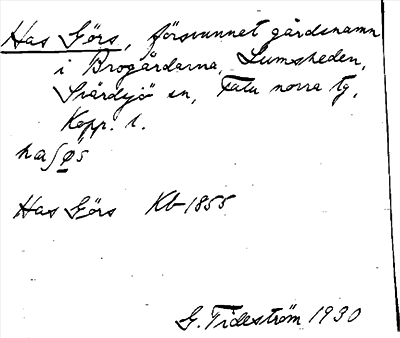 Has Görs, försvunnet gårdsnamn
i Brogårdarna, Lumsheden,
Svärdsjö sn, Falu norra tg,
Kopp. l.
ha∫ø̱s
Has Görs Kb 1855
G. Tideström 1930